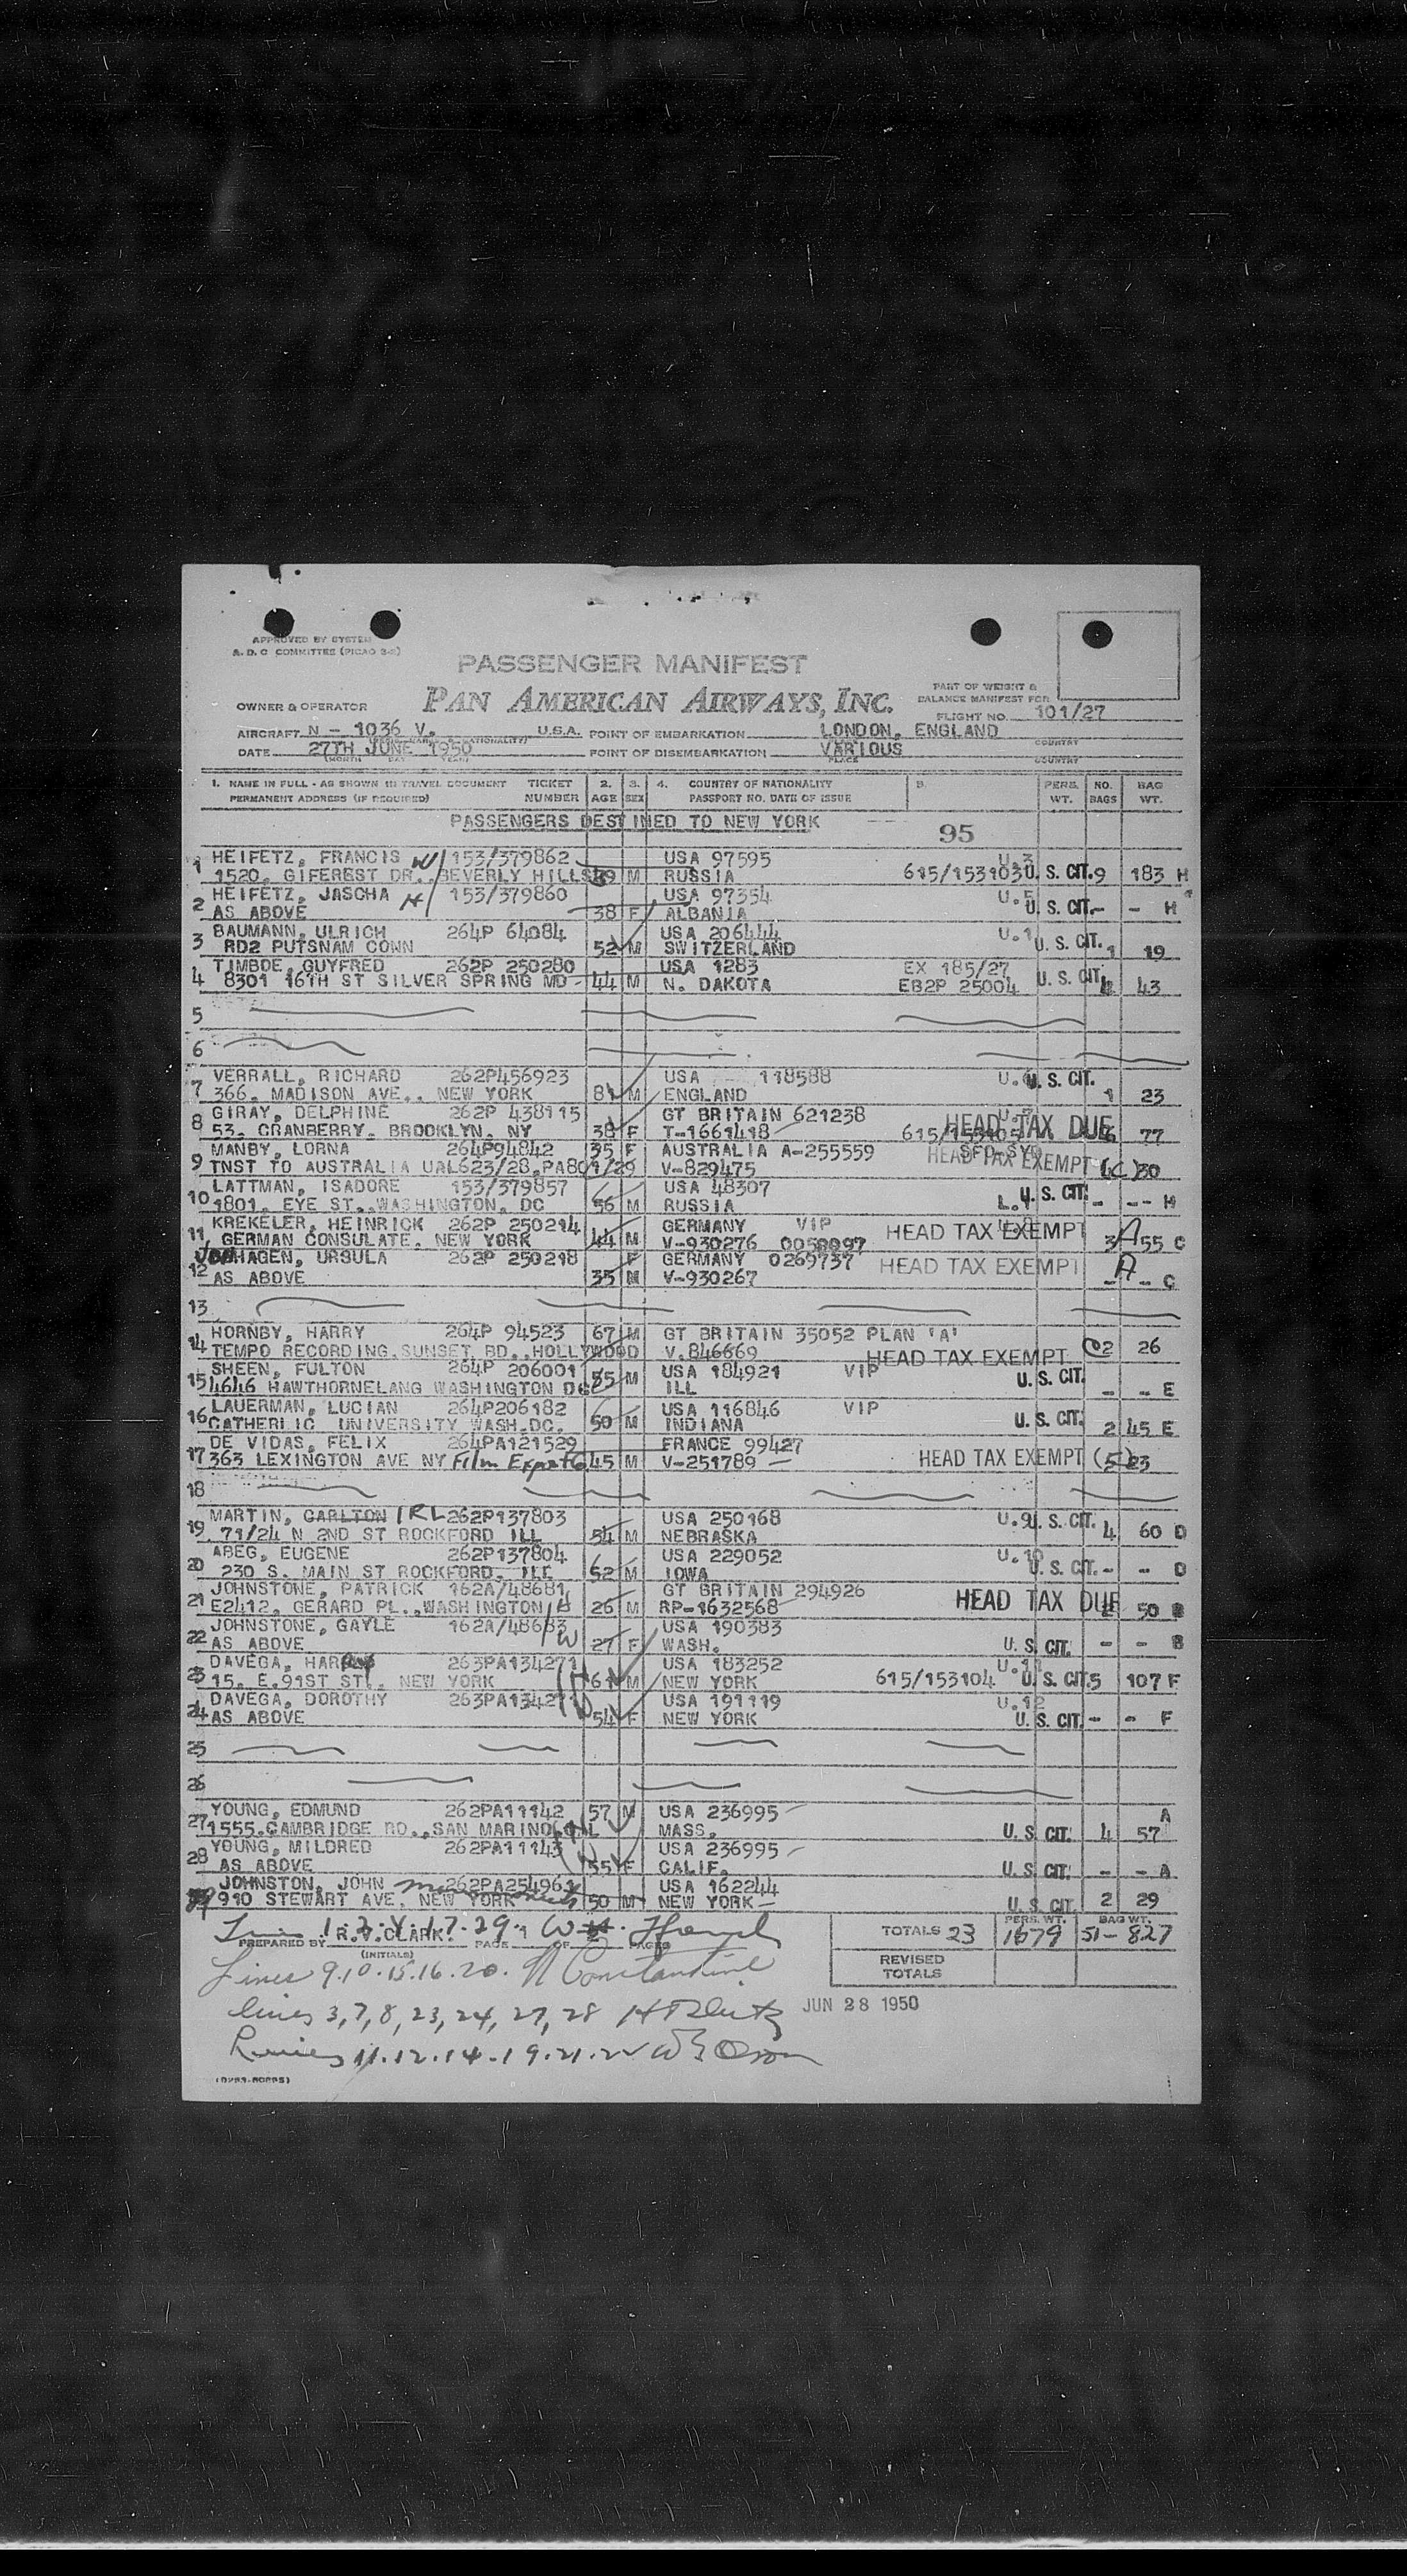 APPROVED BY SYSTEM
A.D.C COMMITTEE (PICAO 3-2)
PASSENGER MANIFEST
PAN AMERICAN AIRWAYS, INC.
PART OF WEIGHT &
BALANCE MANIFEST FOR
OWNER & OPERATOR
FLIGHT NO. 101/27
AIRCRAFT N - 1036 V. U.S.A. POINT OF EMBARKATION LONDON, ENGLAND
DATE 27TH JUNE 1950 POINT OF DISEMBARKATION VARIOUS
(MONTH DAY YEAR) PLACE COUNTRY
1. NAME IN FULL - AS SHOWN IN TRAVEL DOCUMENT TICKET 2. 3. 4. COUNTRY OF NATIONALITY 5. PERS. NO. BAG
PERMANENT ADDRESS (IF REQUIRED) NUMBER AGE SEX PASSPORT NO. DATE OF ISSUE WT. BAGS WT.
PASSENGERS DESTINED TO NEW YORK 95
1 HEIFETZ, FRANCIS W/ 153/379862 USA 97595 U.3
1520. GIFEREST DR. BEVERLY HILLS 49 M RUSSIA 615/153103 U. S. CIT. 9 183 H
2 HEIFETZ, JASCHA H/ 153/379860 USA 97354 U.5
AS ABOVE 38 F ALBANIA U. S. CIT. - - H
3 BAUMANN, ULRICH 264P 64084 USA 206444 U.1
RD2 PUTSNAM CONN 52 M SWITZERLAND U. S. CIT. 1 19
4 TIMBOE, GUYFRED 262P 250280 USA 1283 EX 185/27
8301 16TH ST SILVER SPRING MD - 44 M N. DAKOTA EB2P 25004 U. S. CIT. 43
5
6
7 VERRALL, RICHARD 262P456923 USA 118588
366. MADISON AVE.. NEW YORK 81 M ENGLAND U. S. CIT. 1 23
8 GIRAY, DELPHINE 262P 438115 GT BRITAIN 621238
53. CRANBERRY. BROOKLYN. NY 38 F T-1661418 615/153105 HEAD TAX DUE 77
9 MANBY, LORNA 264P94842 35 F AUSTRALIA A-255559 SFO-SYD
TNST TO AUSTRALIA UAL623/28.PA801/29 V-829475 HEAD TAX EXEMPT (C) 30
10 LATTMAN, ISADORE 153/379857 USA 48307
1801. EYE ST., WASHINGTON. DC 56 M RUSSIA U. S. CIT. - -- H
11 KREKELER, HEINRICK 262P 250214 GERMANY VIP
GERMAN CONSULATE. NEW YORK 44 M V-930276 0058097 HEAD TAX EXEMPT 3 A 55 C
12 HAGEN, URSULA 262P 250218 F GERMANY 0269737 HEAD TAX EXEMPT A
AS ABOVE 35 M V-930267 - - C
13
14 HORNBY, HARRY 264P 94523 67 M GT BRITAIN 35052 PLAN 'A'
TEMPO RECORDING.SUNSET BD..HOLLYWOOD V.846669 HEAD TAX EXEMPT 2 26
15 SHEEN, FULTON 264P 206001 55 M USA 184921 VIP
4646 HAWTHORNELANG WASHINGTON DC ILL U. S. CIT. - - E
16 LAUERMAN, LUCIAN 264P206182 USA 116846 VIP
CATHERLIC UNIVERSITY WASH.DC. 50 M INDIANA U. S. CIT. 2 45 E
17 DE VIDAS, FELIX 264PA121529 FRANCE 99427
363 LEXINGTON AVE NY Film Export 45 M V-251789 - HEAD TAX EXEMPT 23
18
19 MARTIN, CARLTON / RL 262P137803 USA 250168 U.9
71/24 N 2ND ST ROCKFORD ILL 54 M NEBRASKA U. S. CIT. 4 60 D
20 ABEG, EUGENE 262P137804 USA 229052 U.10
230 S. MAIN ST ROCKFORD. ILL 52 M IOWA U. S. CIT. - - D
21 JOHNSTONE, PATRICK 162A/48681 GT BRITAIN 294926
E2412. GERARD PL., WASHINGTON 26 M RP-1632568 HEAD TAX DUE 50 B
22 JOHNSTONE, GAYLE 162A/48683 USA 190383
AS ABOVE W 27 F WASH. U. S. CIT. - - B
23 DAVEGA, HARRY 263PA134271 USA 183252 U.11
15. E.91ST ST. NEW YORK 61 M NEW YORK 615/153104 U. S. CIT. 5 107 F
24 DAVEGA, DOROTHY 263PA134271 USA 191119 U.12
AS ABOVE 54 F NEW YORK U. S. CIT. - - F
25
26
27 YOUNG, EDMUND 262PA11142 57 M USA 236995 A
1555.CAMBRIDGE RD., SAN MARINO CAL MASS. U. S. CIT. 4 57
28 YOUNG, MILDRED 262PA11143 USA 236995
AS ABOVE 55 F CALIF. U. S. CIT. - - A
29 JOHNSTON, JOHN 262PA254961 USA 162244
910 STEWART AVE. NEW YORK 50 M NEW YORK - U. S. CIT. 2 29
1.2.4.17.29.
PREPARED BY R.V.CLARK. PAGE 1 OF PAGES TOTALS 23 PERS. WT. 1679 BAG WT. 51- 827
(INITIALS)
REVISED TOTALS
Lines 9.10.15.16.20. Constantine
lines 3,7,8,23,24,27,28
JUN 28 1950
Lines 11.12.14.19.21.22